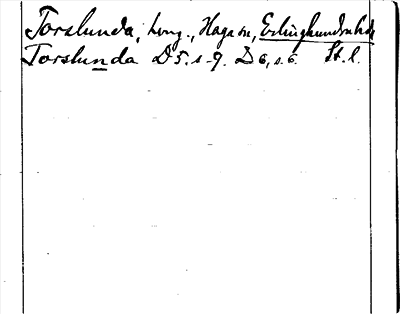 Torslunda, kung., Haga sn, Erlinghundra hd
Torslunda D 5. s-9. D 6, s. 6. St. l.